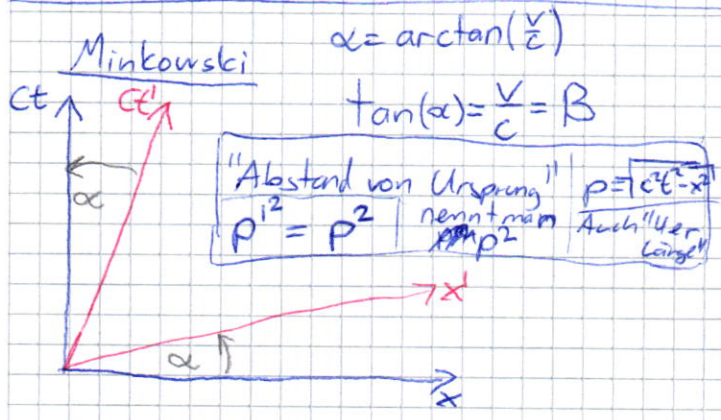 α = arctan(v/c)
Minkowski
tan(α) = v/c = β
ct
ct'
α
"Abstand von Ursprung"
p = √c²t²-x²
p'² = p²
nennt man
p²
Auch "4er
Länge"
x'
α
x